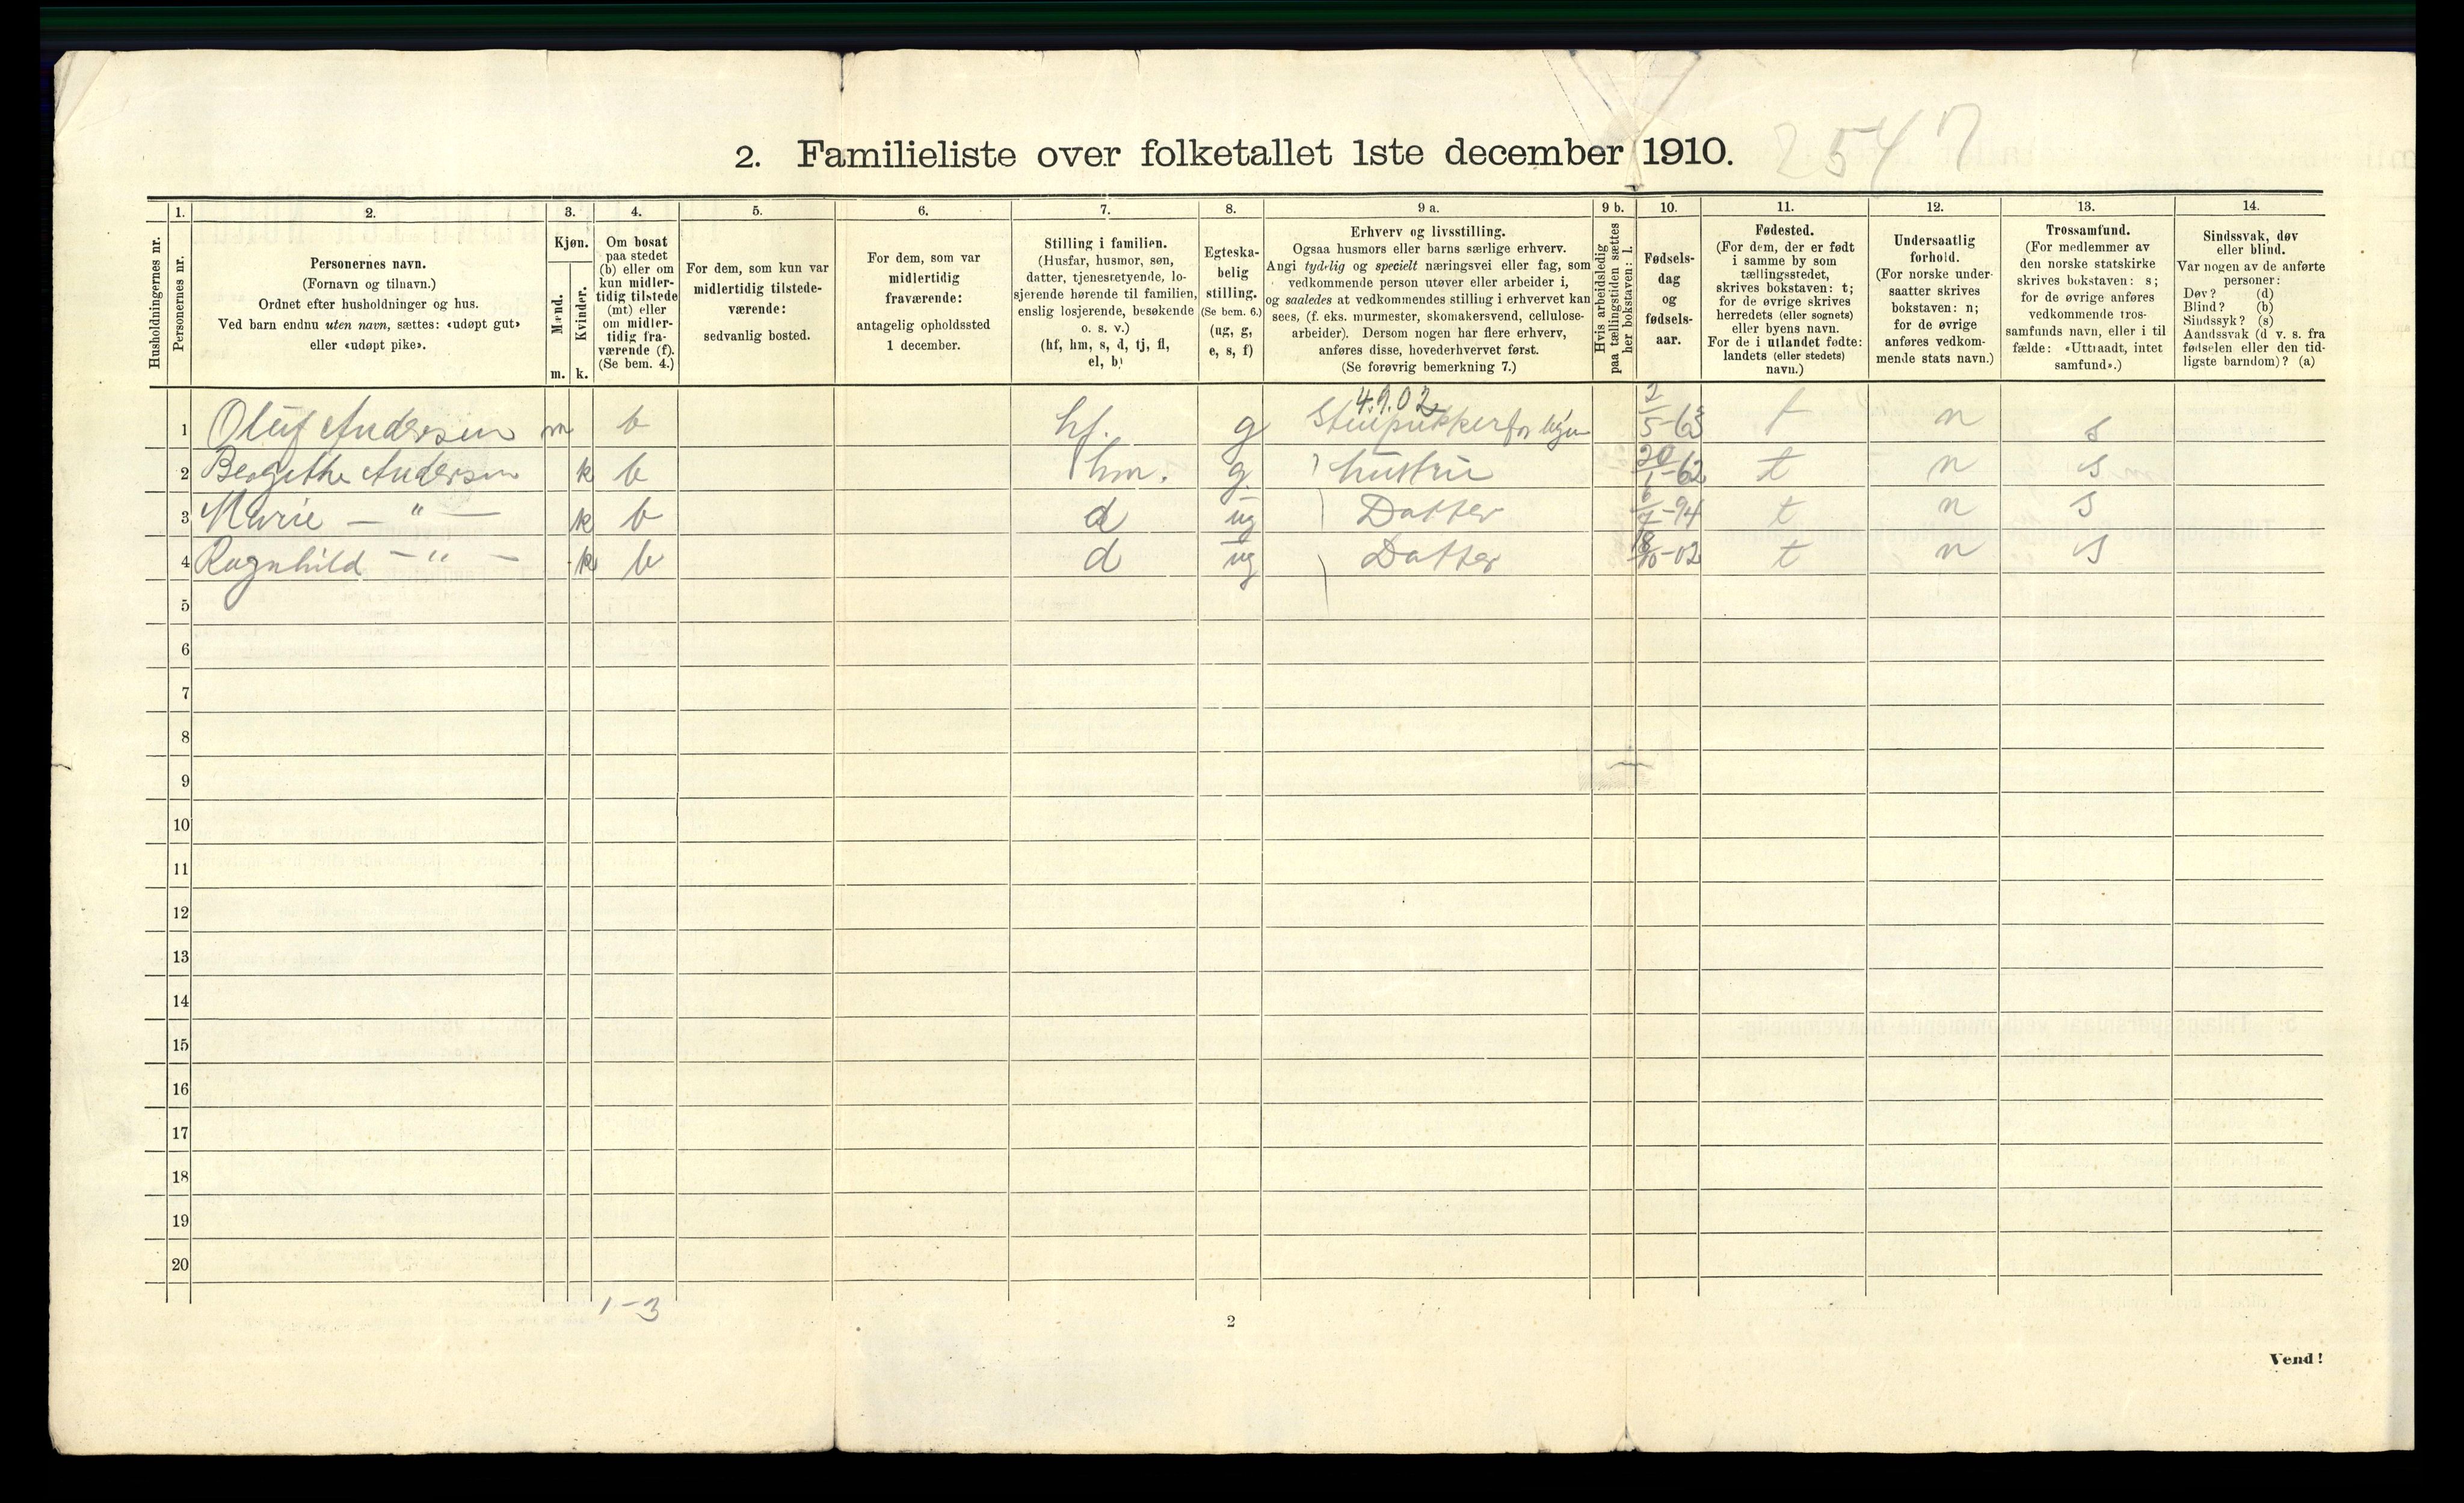 2547
2. Familieliste over folketallet 1ste december 1910.
Husholdningernes nr.
1.
Personernes nr.
2.
Personernes navn.
(Fornavn og tilnavn.)
Ordnet efter husholdninger og hus.
Ved barn endnu uten navn, sættes: «udøpt gut»
eller «udøpt pike».
3.
Kjøn.
Mænd.
Kvinder.
m. k.
4.
Om bosat
paa stedet
(b) eller om
kun midler-
tidig tilstede
(mt) eller
om midler-
tidig fra-
værende (f).
(Se bem. 4.)
5.
For dem, som kun var
midlertidig tilstede-
værende:
sedvanlig bosted.
6.
For dem, som var
midlertidig
fraværende:
antagelig opholdssted
1 december.
7.
Stilling i familien.
(Husfar, husmor, søn,
datter, tjenestetyende, lo-
sjerende hørende til familien,
enslig losjerende, besøkende
o. s. v.)
(hf, hm, s, d, tj, fl,
el, b)
8.
Egteska-
belig
stilling.
(Se bem. 6.)
(ug, g,
e, s, f)
9 a.
Erhverv og livsstilling.
Ogsaa husmors eller barns særlige erhverv.
Angi tydelig og specielt næringsvei eller fag, som
vedkommende person utøver eller arbeider i,
og saaledes at vedkommendes stilling i erhvervet kan
sees, (f. eks. murmester, skomakersvend, cellulose-
arbeider). Dersom nogen har flere erhverv,
anføres disse, hovederhvervet først.
(Se forøvrig bemerkning 7.)
9 b.
Hvis arbeidsledig
paa tællingstiden sættes
her bokstaven: l.
10.
Fødsels-
dag
og
fødsels-
aar.
11.
Fødested.
(For dem, der er født
i samme by som
tællingsstedet,
skrives bokstaven: t;
for de øvrige skrives
herredets (eller sognets)
eller byens navn.
For de i utlandet fødte:
landets (eller stedets)
navn.)
12.
Undersaatlig
forhold.
(For norske under-
saatter skrives
bokstaven: n;
for de øvrige
anføres vedkom-
mende stats navn.)
13.
Trossamfund.
(For medlemmer av
den norske statskirke
skrives bokstaven: s;
for de øvrige anføres
vedkommende tros-
samfunds navn, eller i til
fælde: «Uttraadt, intet
samfund».)
14.
Sindssvak, døv
eller blind.
Var nogen av de anførte
personer:
Døv? (d)
Blind? (b)
Sindssyk? (s)
Aandssvak (d. v. s. fra
fødselen eller den tid-
ligste barndom)? (a)
4.9.02
1 Oluf Andersen m b hf. g Stenpukker 2/5-63 t n s
2 Bergithe Andersen k b hm. g. hustru 20/1-62 t n s
3 Marie — " — k b d ug Datter 6/7-94 t n s
4 Ragnhild — " — k b d ug Datter 18/10-02 t n s
5
6
7
8
9
10
11
12
13
14
15
16
17
18
19
20
1-3
2
Vend!